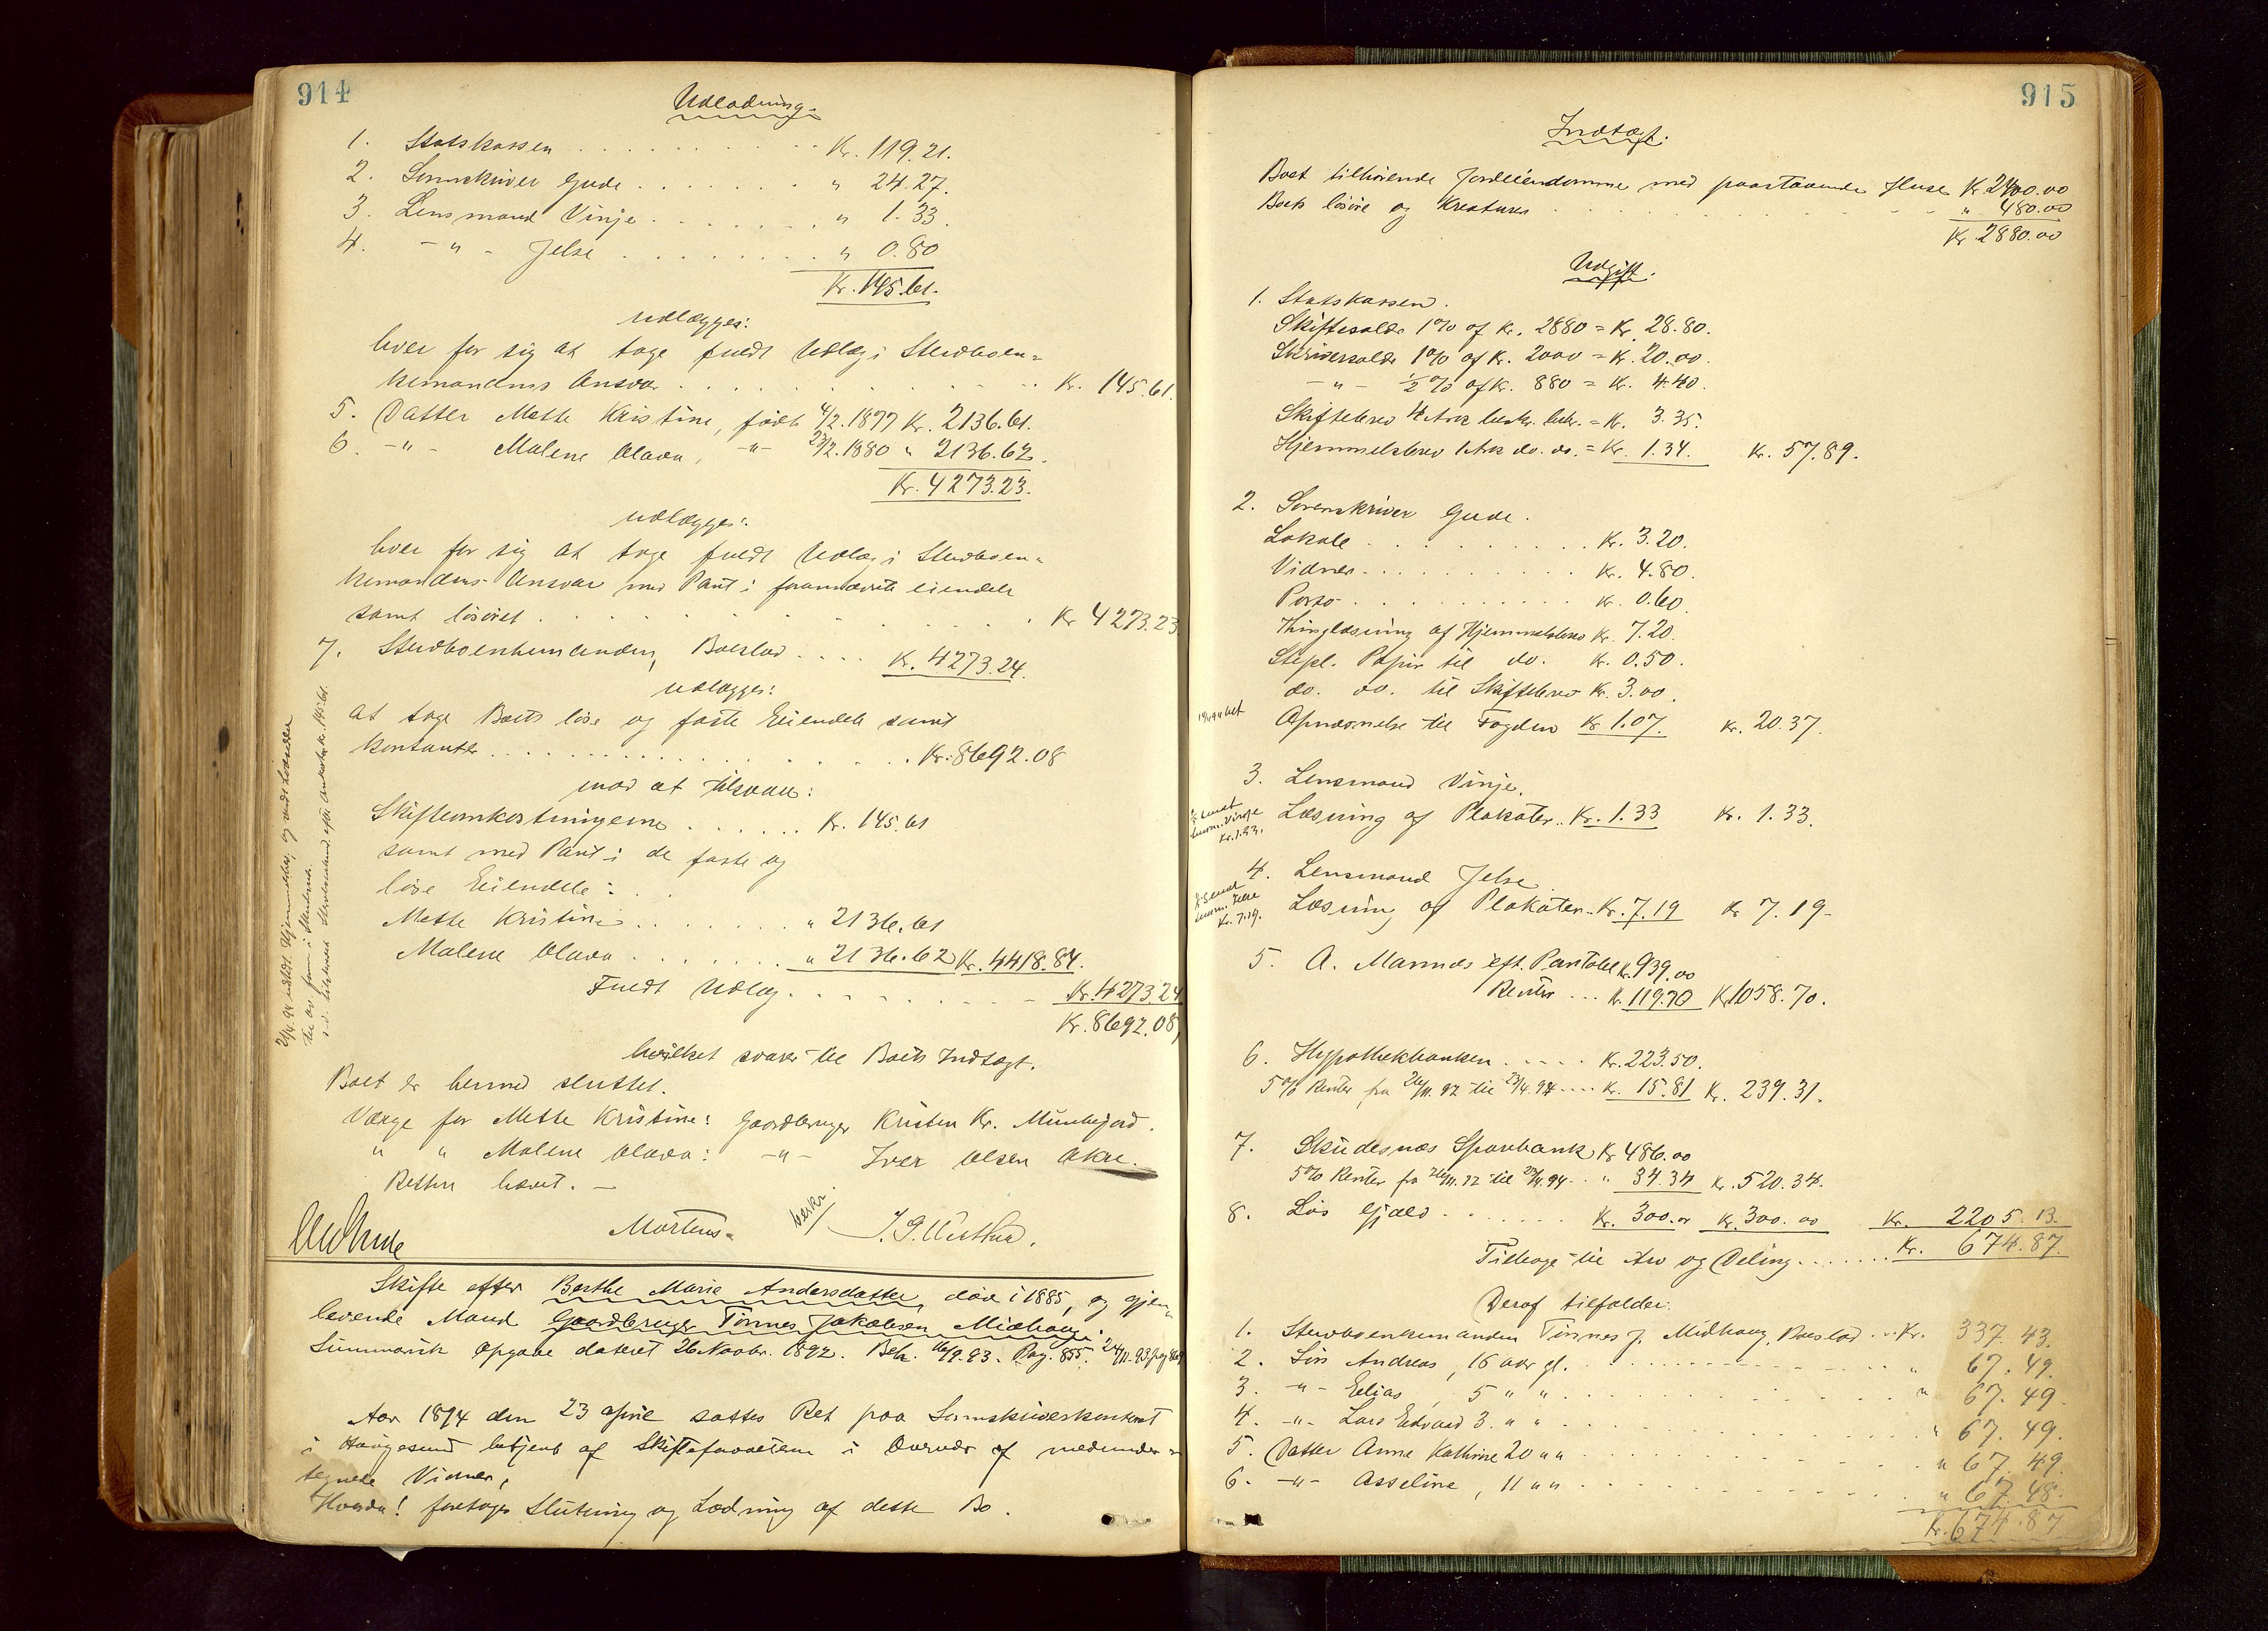 914
Udlodning.
1. Statskassen . . . . Kr. 119.21.
2. Sorenskriver Gude . . . . " 24.27.
3. Lensmand Vinje . . . . " 1.33.
4. -"- Jelse . . . . " 0.80
Kr. 145.61.
udlægges:
hver for sig at tage fuldt Udlæg i Stervboen-
kemandens Ansvar . . . . Kr. 145.61.
5. Datter Mette Kristine, født 4/2.1877 Kr. 2136.61.
6. -"- Malene Olava, -"- 23/2.1880 " 2136.62.
Kr. 4273.23.
udlægges:
hver for sig at tage fuldt Udlæg i Stervboen-
kemandens Ansvar med Pant i forannævnte eiendele
samt løsøret . . . . Kr 4273.23
7. Stervboenkemanden, Boeslod . . . . Kr. 4273.24.
udlægges:
at tage Boets løse og faste Eiendele samt
Kontanter . . . . Kr. 8692.08
mod at tilsvare:
Skifteomkostningerne . . . . Kr. 145.61
samt med Pant i de faste og
løse Eiendele:
Mette Kristine . . . . " 2136.61
Malene Olava . . . . " 2136.62 Kr. 4418.84.
Fuldt Udlæg . . . . Kr. 4273.24
Kr. 8692.08,
hvilket svarer til Boets Indtægt.
Boet er hermed sluttet.
Værge for Mette Kristine: Gaardbruger Kristen Kr. Munkejord.
" " Malene Olava: -"- Iver Olsen Økre.
Retten hævet. —
Mortens. beskr.
Skifte efter Berthe Marie Andersdatter, død i 1885, og gjen-
levende Mand Gaardbruger Tønnes Jakobsen Midhaug.
Summarisk Opgave dateret 26 Novbr. 1892. Beh. 16/9.93. Pag. 855. 24/11.93 pag
Aar 1894 den 23 April sattes Ret paa Sorenskriverkontoret
i Haugesund betjent af Skifteforvalteren i Overvær af medunder-
tegnede Vidner,
Hvorda! foretages Slutning og Lodning af dette Bo.
915
Indtægt.
Boet tilhørende Jordeiendomme med paastaaende Huse Kr 2400.00
Boets løsøre og Kreaturer . . . . " 480.00
Kr 2880.00
Udgift.
1. Statskassen.
Skiftesolde 1% af Kr. 2880 = Kr. 28.80.
Skriversolde 1% af Kr. 2000 = Kr. 20.00.
-"- ½% af Kr. 880 = Kr. 4.40.
Skiftebrev 4 Ark beskr. beh. = Kr. 3.35.
Hjemmelsbrev 1 Ark do. do. = Kr. 1.34. Kr. 57.89.
2. Sorenskriver Gude.
Lokale . . . . Kr. 3.20.
Vidner . . . . Kr. 4.80.
Porto . . . . Kr. 0.60.
Thinglæsning af Hjemmelsbrev Kr. 7.20.
Stepl. Papir til do. Kr. 0.50.
do. do. til Skiftebrev Kr. 3.00.
Avnærmelse til Fogden Kr 1.07. Kr. 20.37.
3. Lensmand Vinje.
Læsning af Plakater . . Kr. 1.33 Kr. 1.33.
Lensm. Vinje
Kr. 1.33.
4. Lensmand Jelse
Læsning af Plakater . . Kr. 7.19 Kr 7.19-
Lensm. Jelse
Kr. 7.19.
5. A. Mannes eft. Pantobl Kr. 939.00
Renter . . . Kr. 119.70 Kr 1058.70.
6. Hypothekbanken . . . . Kr. 223.50.
5% Renter fra 26/11.92 til 23/4.94 . . . . Kr. 15.81 Kr. 239.31.
7. Skudesnæs Sparebank Kr 486.00
5% Renter fra 26/11.92 til 23/4.94 . . " 34.34 Kr. 520.34.
8. Løs Gjæld . . . . Kr. 300.00 Kr. 300.00 Kr. 2205.13.
Tilbage til Arv og Deling . . . . Kr. 674.87.
Deraf tilfalder:
1. Stervboenkemanden Tønnes J. Midhaug, Boeslod . . Kr. 337.43.
2. Søn Andreas, 16 aar gl. . . . . " 67.49.
3. -"- Elias, 5 " " . . . . " 67.49.
4. -"- Lars Edvard 3. " " . . . . " 67.49.
5. Datter Anne Kathrine 20 " " . . . . " 67.49.
6. -"- Asseline, 11 " " . . . . " 67.48.
Kr. 674.87